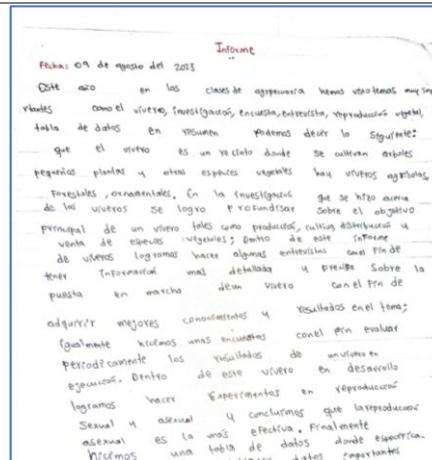 Informe
Fecha: 09 de agosto del 2023
Este año en las clases de agropecuaria hemos visto temas muy imp
rtantes como el viveros, investigacion, encuesta, entrevista, reproduccion vegetal,
tabla de datos en resumen podemos decir lo siguiente:
que el vivero es un recinto donde se cultivan arboles
pequeños plantas y otras especies vegetales hay viveros agricolas,
Forestales, ornamentales. En la investigacion que se hizo acerca
de los viveros se logro profundisar sobre el objetivo
principal de un vivero tales como produccion, cultivo, distribucion y
venta de especies vegetales; Dentro de este informe
de viveros logramos hacer algunas entrevistas conel Fin de
tener informacion mas detallada y precisa sobre la
puesta en marcha deun vivero conel Fin de
adquirir mejores conocimientos y resultados enel tema;
igualmente hicimos unas encuestas conel fin evaluar
periodicamente los resultados de unvivero en
ejecucion. Dentro de este vivero en desarrollo
logramos hacer Experimentos en reproduccion
Sexual y asexual y concluimos que lareproduccion
asexual es la mas efectiva. Finalmente
hicimos una tabla de datos donde
datos importantes